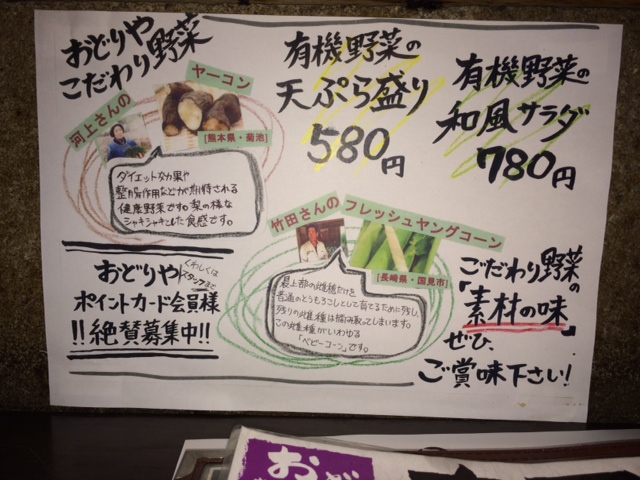 おどりや
こだわり野菜
ヤーコン
河上さんの
[熊本県・菊池]
ダイエット効果や
整腸作用などが期待される
健康野菜です。梨の様な
シャキシャキとした食感です。
有機野菜の
天ぷら盛り
580円
有機野菜の
和風サラダ
780円
竹田さんの フレッシュヤングコーン
[長崎県・国見市]
最上部の雌穂だけを
普通のとうもろこしとして育てるために残し、
残りの雌穂は間み取ってしまいます。
この雌穂がいわゆる
「ベビーコーン」です。
おどりや
くわしくは
スタッフまで
ポイントカード会員様
!!絶賛募集中!!
こだわり野菜の
「素材の味」
ぜひ、
ご賞味下さい!
おど